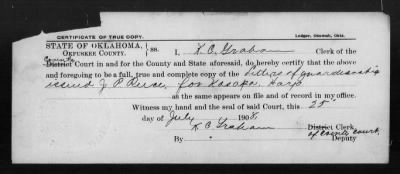 CERTIFICATE OF TRUE COPY.
Ledger, Okemah, Okla.
STATE OF OKLAHOMA,
OKFUSKEE COUNTY. } ss. I, K. C. Graham Clerk of the
County
District Court in and for the County and State aforesaid, do hereby certify that the above
and foregoing to be a full, true and complete copy of the Letters of guardianship
issued J. P. for Harjo
as the same appears on file and of record in my office.
Witness my hand and the seal of said Court, this 25
day of July 1908.
K C Graham District Clerk
of County Court,
By Deputy